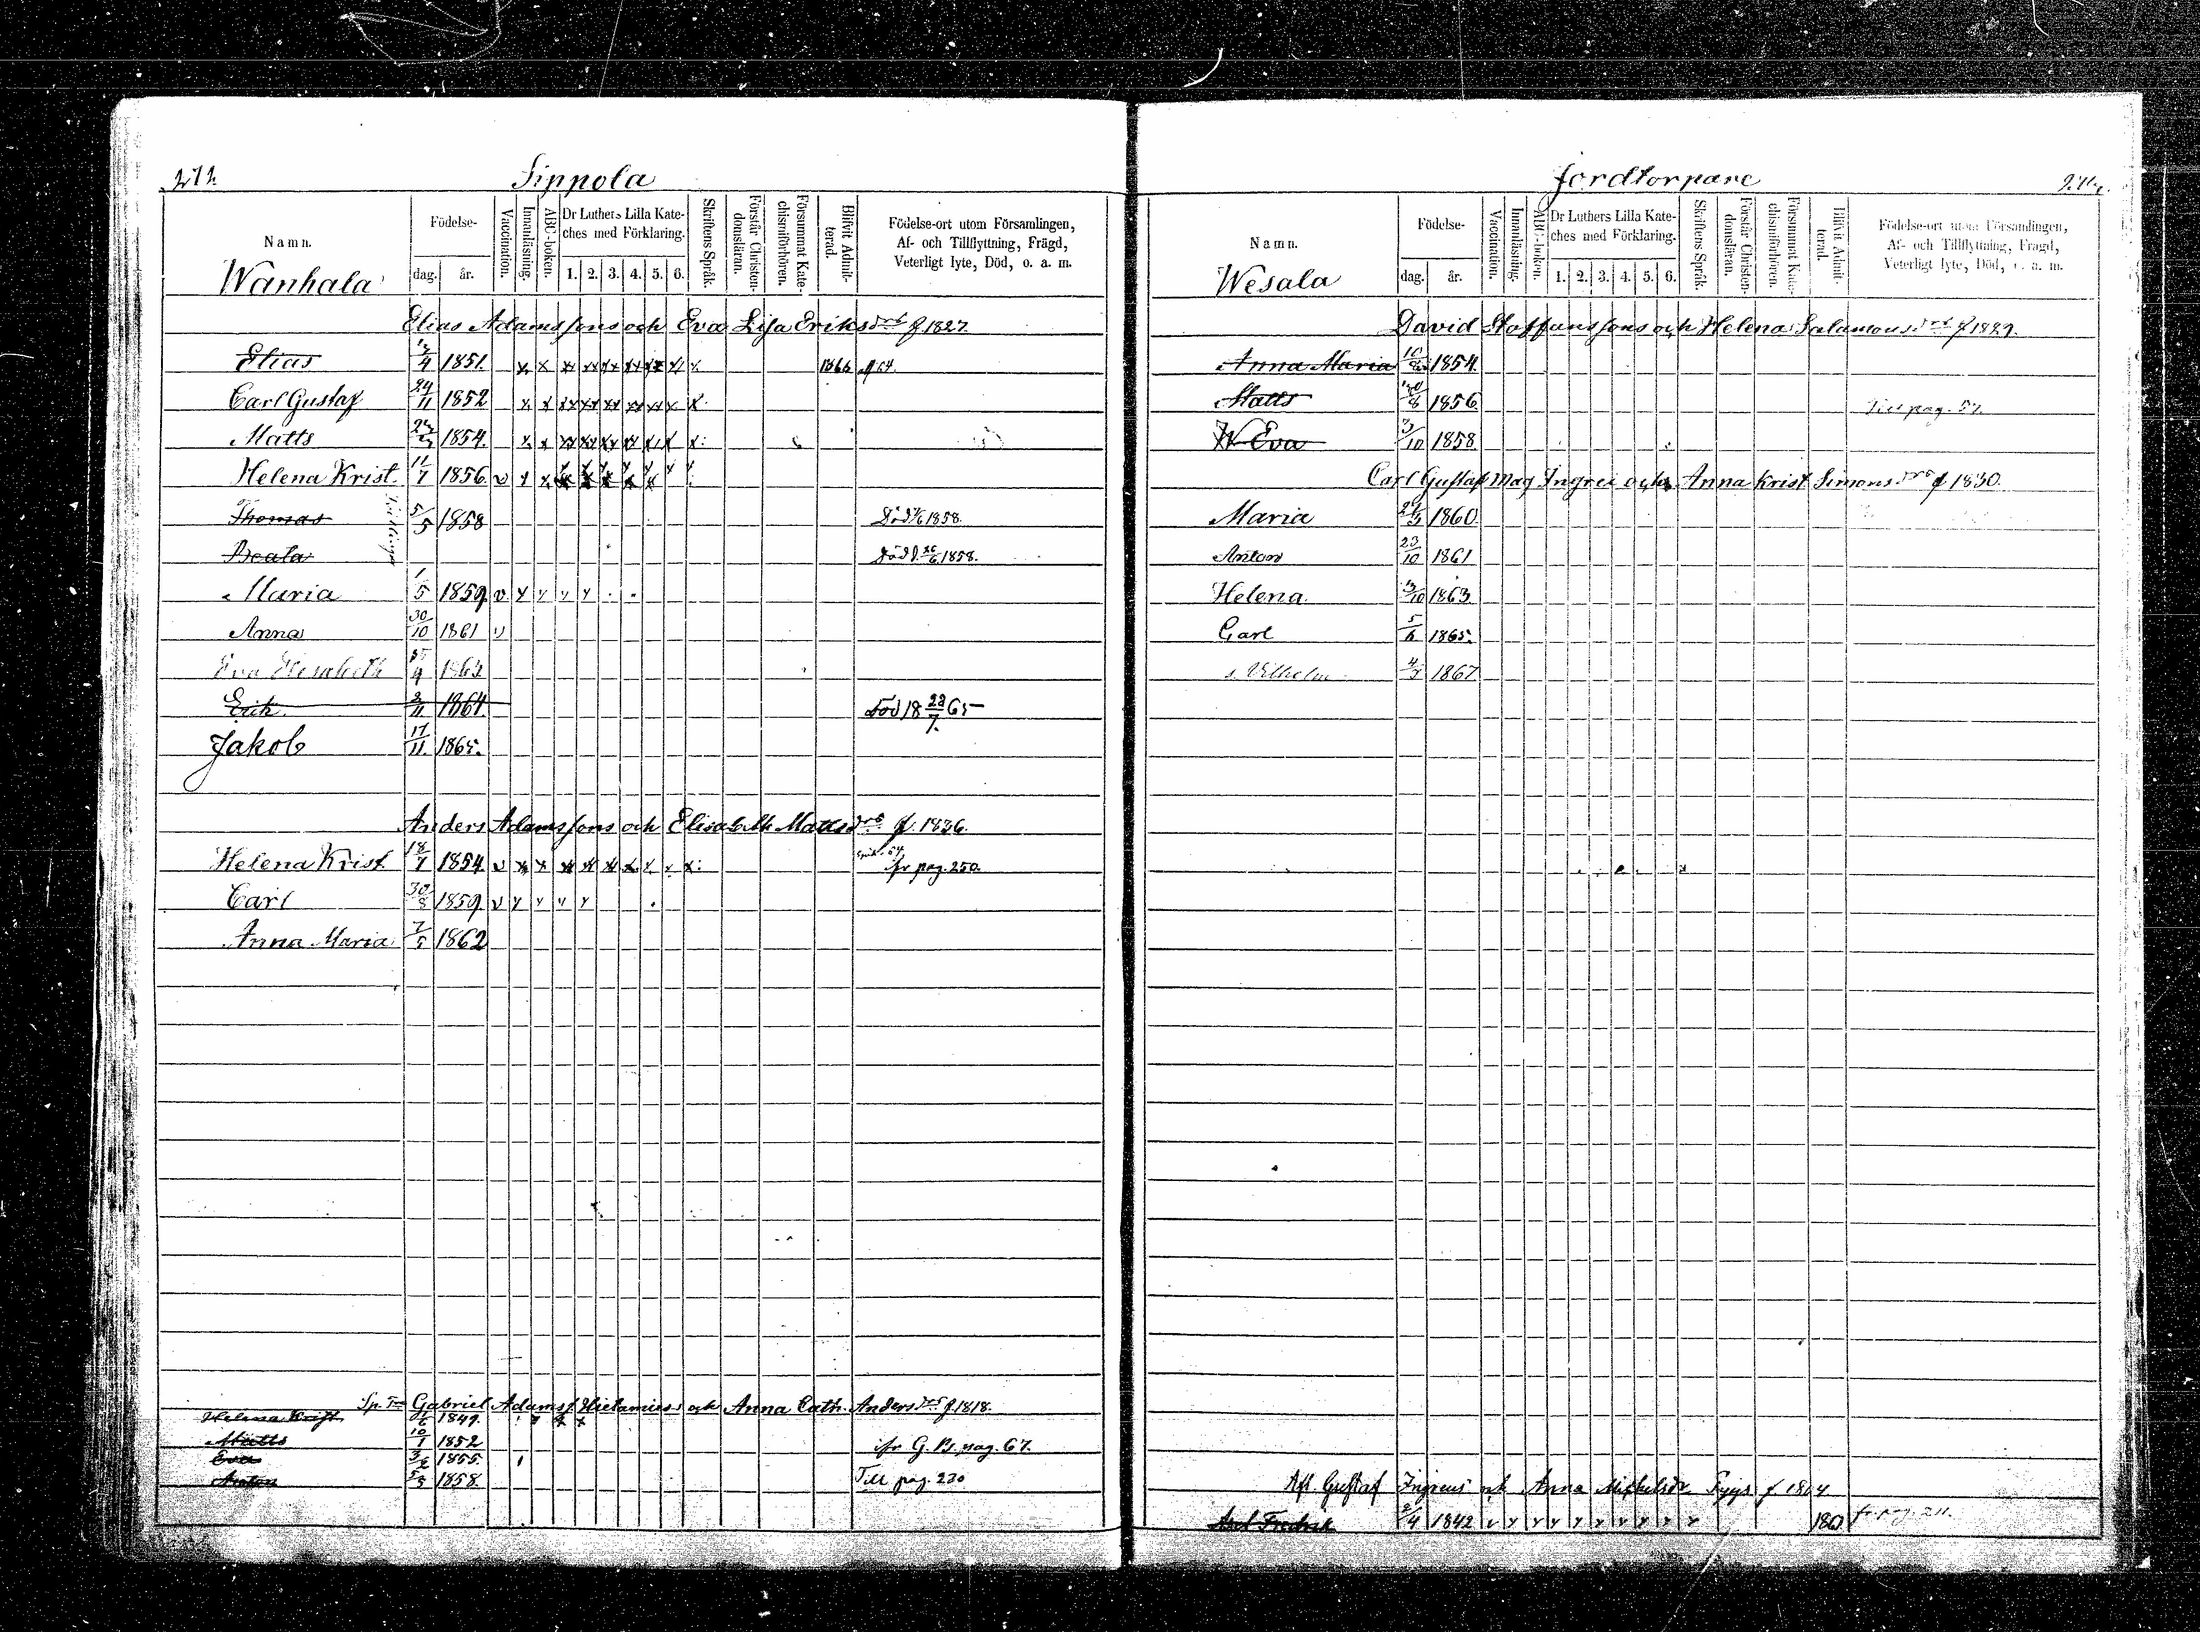 272 Sippola
Namn. Födelse- dag. år. Vaccination. Innanläsning. ABC-boken. Dr Luthers Lilla Kateches med Förklaring. 1. 2. 3. 4. 5. 6. Skriftens Språk. Förstår Christendomsläran. Försummat Katechismiförhören. Blifvit Admitterad. Födelse-ort utom Församlingen, Af- och Tillflyttning, Frägd, Veterligt lyte, Död, o. a. m.
Wanhala
Elias Adamssons och Eva Lisa Eriksdrs f 1827
Elias 4 1851. x x xx xx xx xx xx x x 1866
Carl Gustaf 24/11 1852 x x xx xx xx xx xx x
Matts 1854. x x xx xx xx xx x x x
Helena Krist. 11/7 1856. v x x x x x x x
Thomas 5/5 1858 Död 1858.
Beata Död 26/6 1858.
Maria 1/5 1859. v x v v v
Anna 30/10 1861 v
Eva Elisabeth 9 1863
Erik 2/11 1864. Död 18 23/7 65
Jakob 17/11 1865.
Anders Adamssons och Elisabeth Mattsdrs f. 1836.
Helena Krist 18/1 1854. v x x x x x x x v x fr pag. 250.
Carl 30/8 1859 v v v v v
Anna Maria 7/5 1862
Gabriel Adamss Hietamies och Anna Cath. Andersdrs f 1818.
Helena Krist 1849.
Matts 10/1 1852 ifr G. B. pag. 67.
Eva 3/2 1855.
Anton 5/5 1858. Till pag. 230
Jordtorpare
Namn. Födelse- dag. år. Vaccination. Innanläsning. ABC-boken. Dr Luthers Lilla Kateches med Förklaring. 1. 2. 3. 4. 5. 6. Skriftens Språk. Förstår Christendomsläran. Försummat Katechismiförhören. Blifvit Admitterad. Födelse-ort utom Församlingen, Af- och Tillflyttning, Frägd, Veterligt lyte, Död, o. a. m.
Wesala
David Staffanssons och Helena Salamonsdrs f 1829.
Anna Maria 1854.
Matts 1856. Till pag. 57
Eva 3/10 1858
Carl Gustaf Ingrei och Anna Krist Simonsdrs f 1830.
Maria 1860
Anton 23/10 1861
Helena 1863
Carl 5/6 1865.
Vilhelm 1867
Gustaf Ingreus och Anna f 1814
Axel Fredrik 1842 v v v v v v v v v v fr pag. 211.